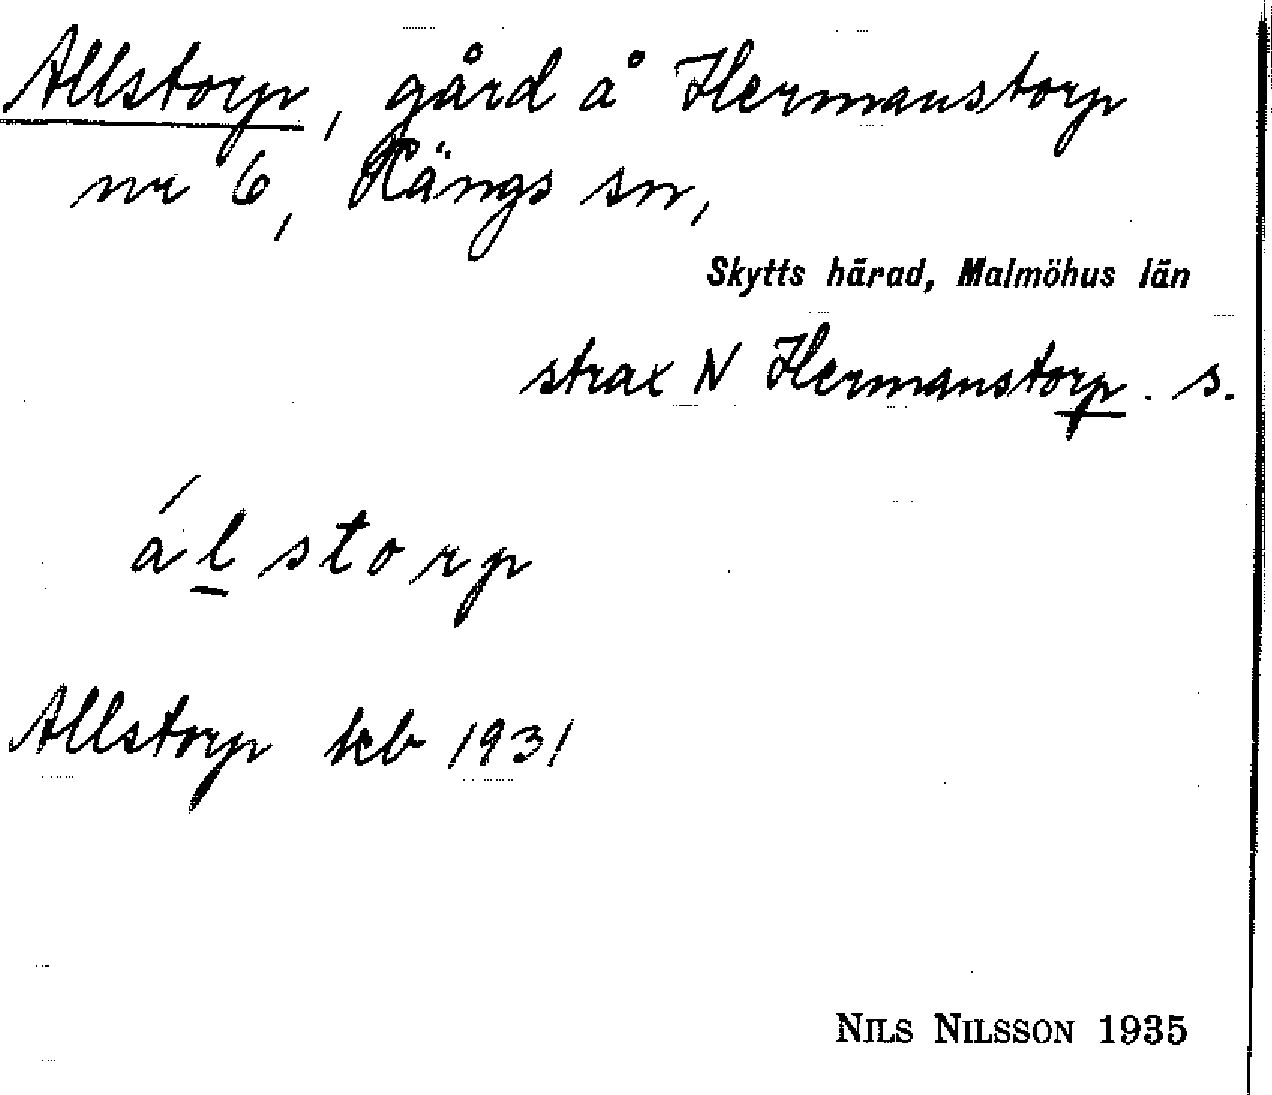 Allstorp, gård å Hermanstorp
nr 6, Rängs sn,
Skytts härad, Malmöhus län
strax N Hermanstorp. s.
álstorp
Allstorp kb 1931
NILS NILSSON 1935